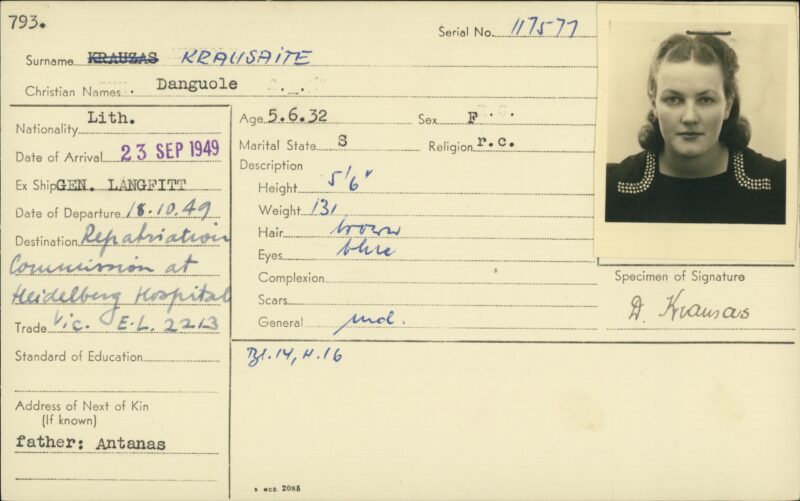 793.
Serial No. 117577
Surname KRAUZAS KRAUSAITE
Christian Names. Danguole
Nationality Lith.
Date of Arrival 23 SEP 1949
Ex Ship GEN. LANGFITT
Date of Departure 18.10.49
Destination Repatriation
Commission at
Heidelberg Hospital
Vic. E.L. 2213
Trade
Standard of Education
Address of Next of Kin
(If known)
father: Antanas
Age 5.6.32 Sex F
Marital State S Religion r.c.
Description
Height 5'6"
Weight 131
Hair brown
Eyes blue
Complexion
Scars
General med.
Bl.14, H.16
Specimen of Signature
D. Krausas
MCD. 2085